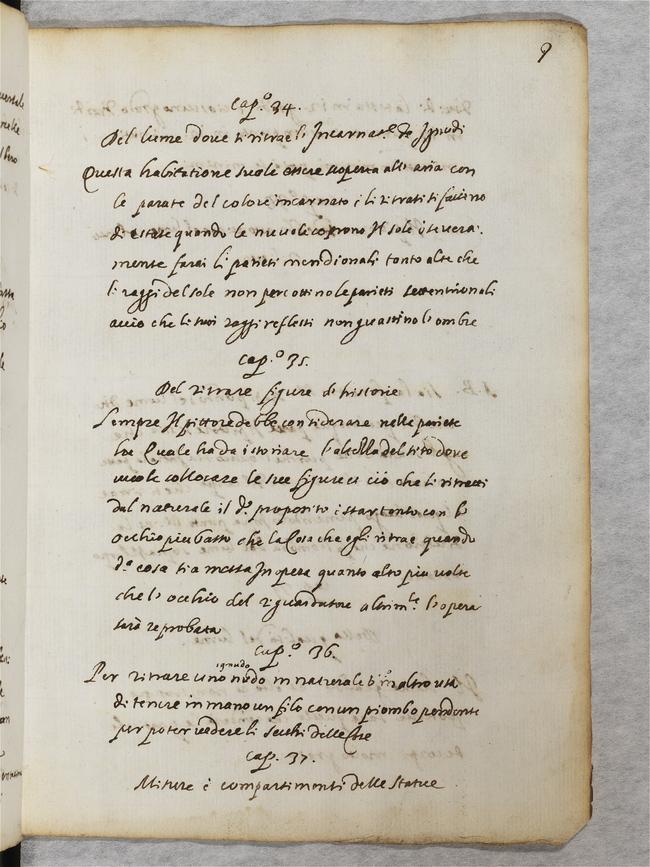 9
Cap.º 34.
Del lume dove si ritrae l' Incarnat.ᵉ de Ignudi
Questa habitatione suole essere scoperta all' aria con
le parate del colore incarnato i li ritrati si faccino
di estate quando le nuvole coprono Il sole
mente farai li parieti meridionali tanto alte che
li raggi del sole non percottino le parieti settentrionali
accio che li suoi raggi reflessi non guastino l' ombre
Cap.º 35.
Del ritrare figure di historie
Sempre Il pittore debbe considerare nella pariete
la Quale ha da istoriare del sito dove
vuole collocare le sue figure ciò che li ritratti
dal naturale il d.º proposito i star tanto con l'
occhio piu basso che la Cosa che egli ritrae quando
d.ª cosa sia messa In opera quanto alto piu volte
che l' occhio del riguardatore altrim.te l' opera
sarà reprobata
Cap.º 36.
ignudo
Per ritrare uno nudo in naturale altro usa
di tenere in mano un filo con un piombo pendente
per poter vedere li delle Cose
Cap. 37.
Misure è compartimenti delle Statue